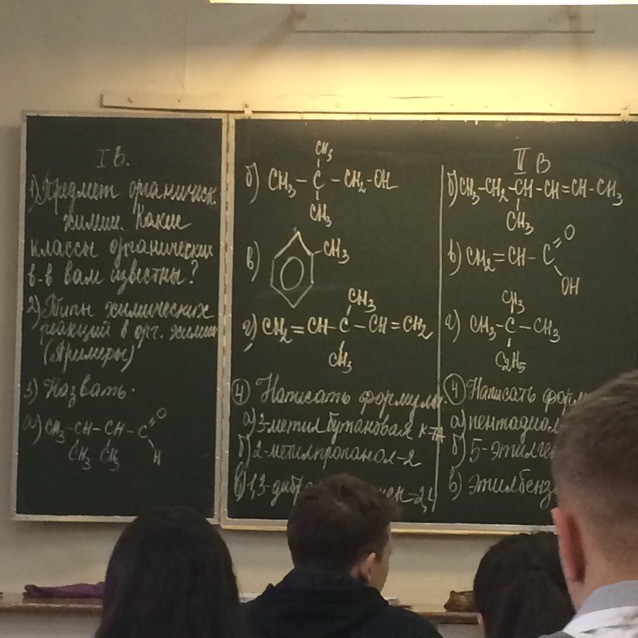 I В.
1) Предмет органическ.
химии. Какие
классы органических
в-в вам известны?
2) Типы химических
реакций в орг. химии
(Примеры)
3) Назвать:
а) CH3-CH-CH-C=O
CH3 CH3 H
CH3
б) CH3-C-CH2-OH
CH3
в) CH3
CH3
г) CH2=CH-C-CH=CH2
CH3
4 Написать формулы
а) 3-метилбутановая к-та
б) 2-метилпропанол-2
в) 1,3-
II В
б) CH3-CH2-CH-CH=CH-CH3
CH3
в) CH2=CH-C=O
OH
CH3
г) CH3-C-CH3
C2H5
4 Написать
а)
б) 5-
в)